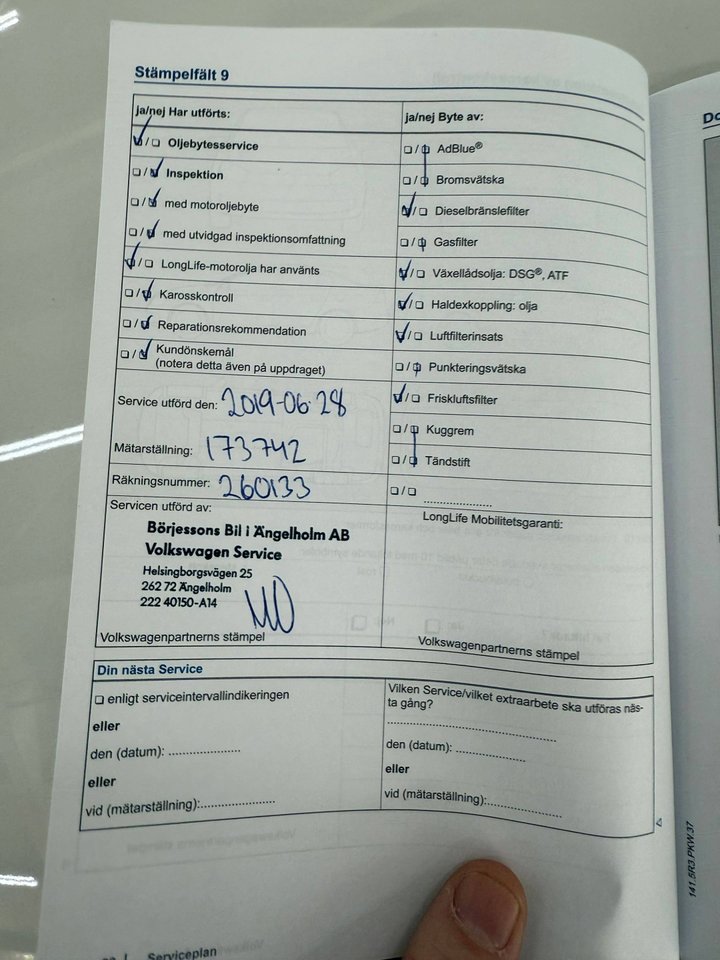 Stämpelfält 9
ja/nej Har utförts:
☑/☐ Oljebytesservice
☐/☑ Inspektion
☐/☑ med motoroljebyte
☐/☑ med utvidgad inspektionsomfattning
☑/☐ LongLife-motorolja har använts
☐/☑ Karosskontroll
☐/☑ Reparationsrekommendation
☐/☑ Kundönskemål
(notera detta även på uppdraget)
Service utförd den: 2019-06-28
Mätarställning: 173742
Räkningsnummer: 260133
Servicen utförd av:
Börjessons Bil i Ängelholm AB
Volkswagen Service
Helsingborgsvägen 25
262 72 Ängelholm
222 40150-A14
Volkswagenpartnerns stämpel
ja/nej Byte av:
☐/☑ AdBlue®
☐/☑ Bromsvätska
☑/☐ Dieselbränslefilter
☐/☑ Gasfilter
☑/☐ Växellådsolja: DSG®, ATF
☑/☐ Haldexkoppling: olja
☑/☐ Luftfilterinsats
☐/☑ Punkteringsvätska
☑/☐ Friskluftsfilter
☐/☑ Kuggrem
☐/☑ Tändstift
☐/☐ ....................
LongLife Mobilitetsgaranti:
Volkswagenpartnerns stämpel
Din nästa Service
☐ enligt serviceintervallindikeringen
eller
den (datum): ....................
eller
vid (mätarställning):....................
Vilken Service/vilket extraarbete ska utföras näs-
ta gång?
..................................................
den (datum): ....................
eller
vid (mätarställning):....................
Serviceplan
141.5R3.PKW.37
Do